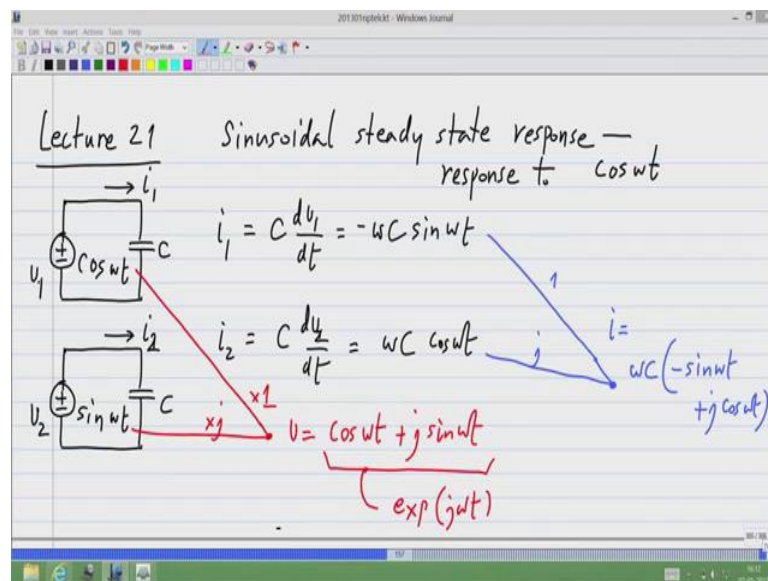 201301nptelckt - Windows Journal
File Edit View Insert Actions Tools Help
Page Width
B I
Lecture 21 Sinusoidal steady state response —
response to cos ωt
→ i₁
i₁ = C dv₁/dt = -ωC sin ωt
v₁ cos ωt C
1
→ i₂
i₂ = C dv₂/dt = ωC cos ωt
j
i =
ωC(-sin ωt
+j cos ωt)
v₂ sin ωt C
x1
xj
v = cos ωt + j sin ωt
exp(jωt)
157
16:12